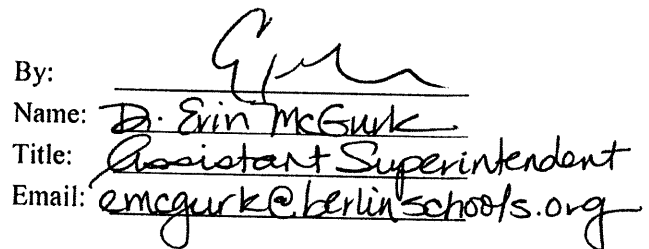 By:
Name: Dr. Erin McGurk
Title: Assistant Superintendent
Email: emcgurk@berlinschools.org